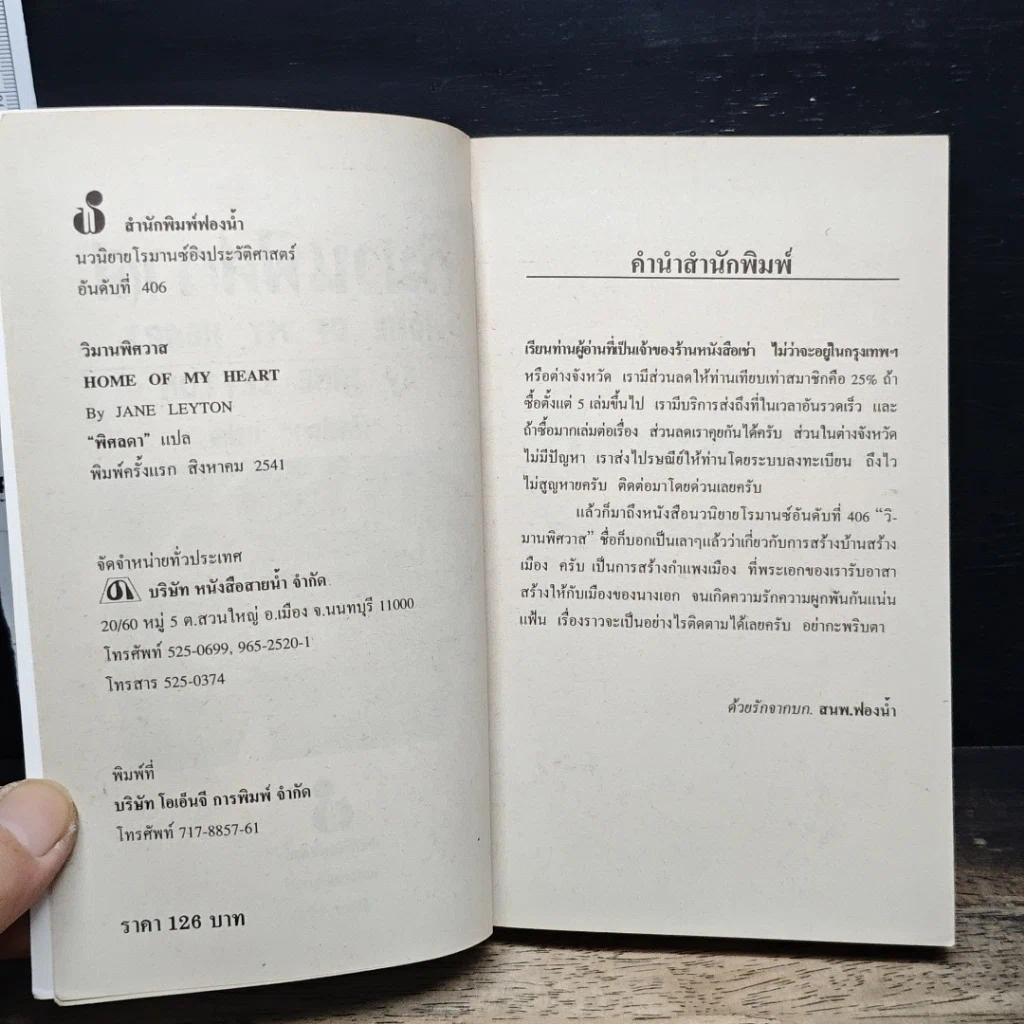 สำนักพิมพ์ฟองน้ำ
นวนิยายโรมานซ์อิงประวัติศาสตร์
อันดับที่ 406
วิมานพิศวาส
HOME OF MY HEART
By JANE LEYTON
“พิศลดา” แปล
พิมพ์ครั้งแรก สิงหาคม 2541
จัดจำหน่ายทั่วประเทศ
บริษัท หนังสือสายน้ำ จำกัด
20/60 หมู่ 5 ต.สวนใหญ่ อ.เมือง จ.นนทบุรี 11000
โทรศัพท์ 525-0699, 965-2520-1
โทรสาร 525-0374
พิมพ์ที่
บริษัท โอเอ็นจี การพิมพ์ จำกัด
โทรศัพท์ 717-8857-61
ราคา 126 บาท
คำนำสำนักพิมพ์
เรียนท่านผู้อ่านที่เป็นเจ้าของร้านหนังสือเช่า ไม่ว่าจะอยู่ในกรุงเทพฯ
หรือต่างจังหวัด เรามีส่วนลดให้ท่านเทียบเท่าสมาชิกคือ 25% ถ้า
ซื้อตั้งแต่ 5 เล่มขึ้นไป เรามีบริการส่งถึงที่ในเวลาอันรวดเร็ว และ
ถ้าซื้อมากเล่มต่อเรื่อง ส่วนลดเราคุยกันได้ครับ ส่วนในต่างจังหวัด
ไม่มีปัญหา เราส่งไปรษณีย์ให้ท่านโดยระบบลงทะเบียน ถึงไว
ไม่สูญหายครับ ติดต่อมาโดยด่วนเลยครับ
แล้วก็มาถึงหนังสือนวนิยายโรมานซ์อันดับที่ 406 “วิ-
มานพิศวาส” ชื่อก็บอกเป็นเลาๆแล้วว่าเกี่ยวกับการสร้างบ้านสร้าง
เมือง ครับ เป็นการสร้างกำแพงเมือง ที่พระเอกของเรารับอาสา
สร้างให้กับเมืองของนางเอก จนเกิดความรักความผูกพันกันแน่น
แฟ้น เรื่องราวจะเป็นอย่างไรติดตามได้เลยครับ อย่ากะพริบตา
ด้วยรักจากบก. สนพ.ฟองน้ำ